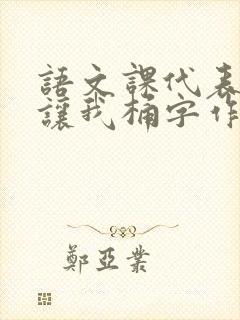 語文課代表
讓我桶字作
鄭亞業